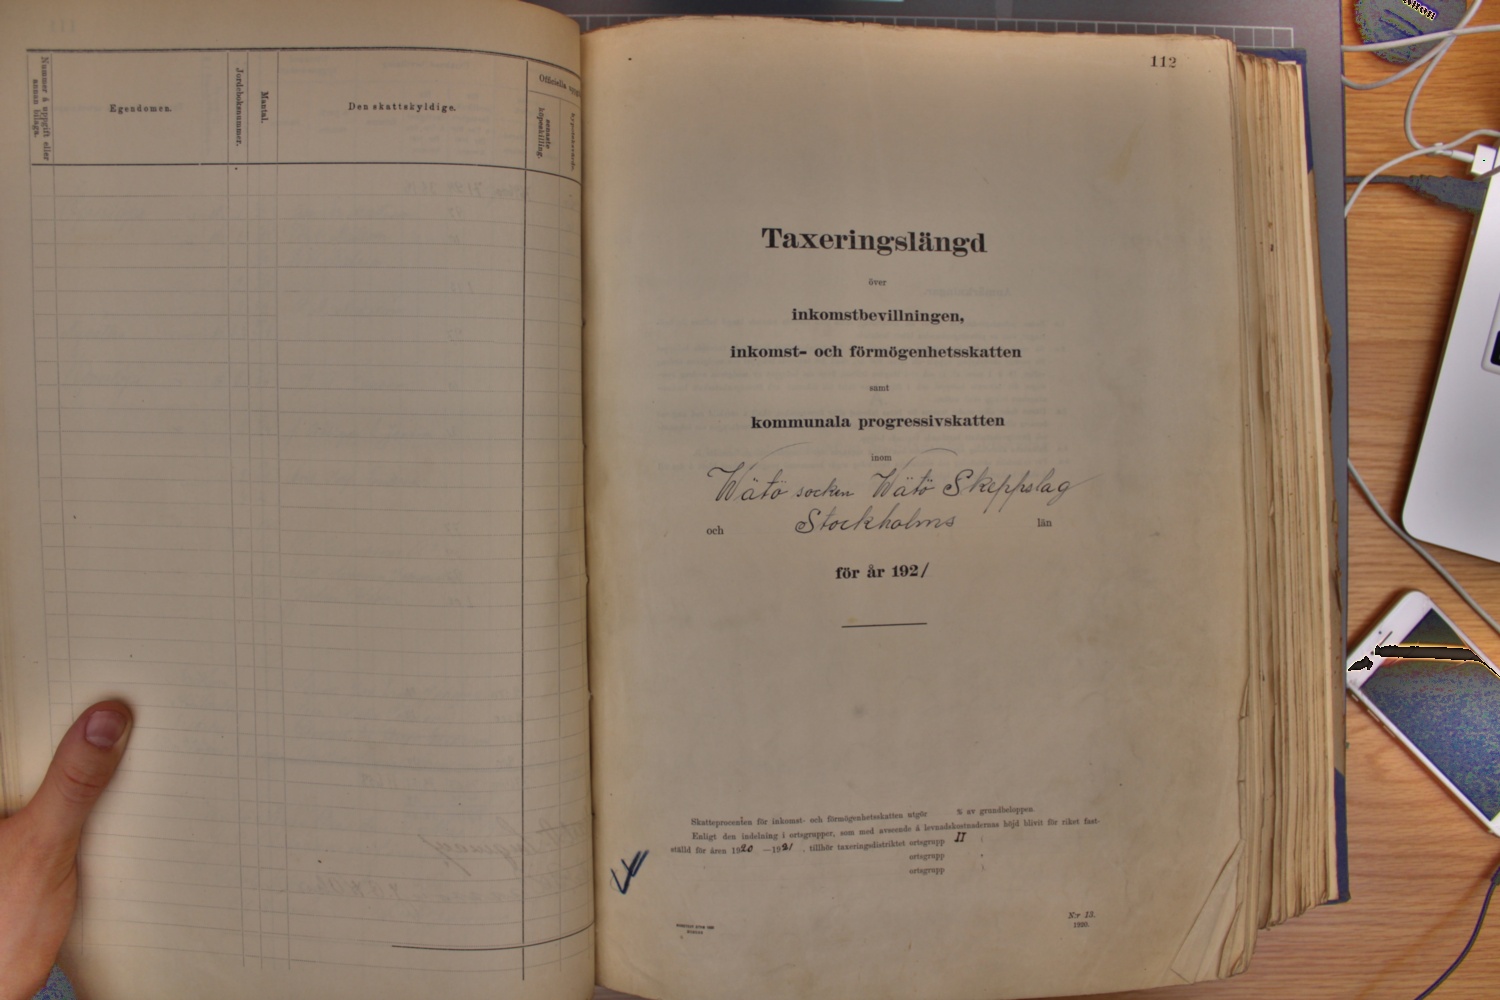 Nummer å uppgift eller
annan bilaga.
Egendomen.
Jordeboksnummer.
Mantal.
Den skattskyldige.
senaste
köpeskilling.
112
Taxeringslängd
över
inkomstbevillningen,
inkomst- och förmögenhetsskatten
samt
kommunala progressivskatten
inom
Wätö socken Wätö Skeppslag
och Stockholms län
för år 1921
Skatteprocenten för inkomst- och förmögenhetsskatten utgör % av grundbeloppen.
Enligt den indelning i ortsgrupper, som med avseende å levnadskostnadernas höjd blivit för riket fast-
ställd för åren 1920 —1921 , tillhör taxeringsdistriktet ortsgrupp II
ortsgrupp
ortsgrupp
N:r 13.
1920.